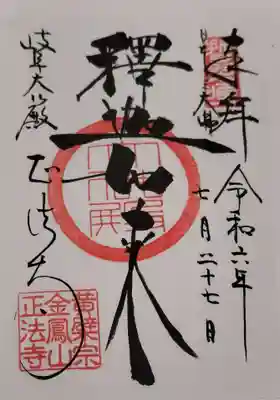 奉拝
令和六年
七月二十七日
釋迦如来
岐阜大仏殿
正法寺
黄檗宗
金鳳山
正法寺